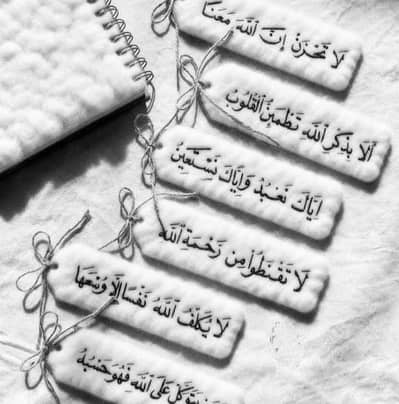 لَا تَحْزَنْ إِنَّ اللَّهَ مَعَنَا
أَلَا بِذِكْرِ اللَّهِ تَطْمَئِنُّ الْقُلُوبُ
إِيَّاكَ نَعْبُدُ وَإِيَّاكَ نَسْتَعِينُ
لَا تَقْنَطُوا مِن رَّحْمَةِ اللَّهِ
لَا يُكَلِّفُ اللَّهُ نَفْسًا إِلَّا وُسْعَهَا
يَتَوَكَّلْ عَلَى اللَّهِ فَهُوَ حَسْبُهُ